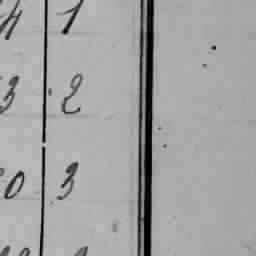 4 1
3 2
0 3